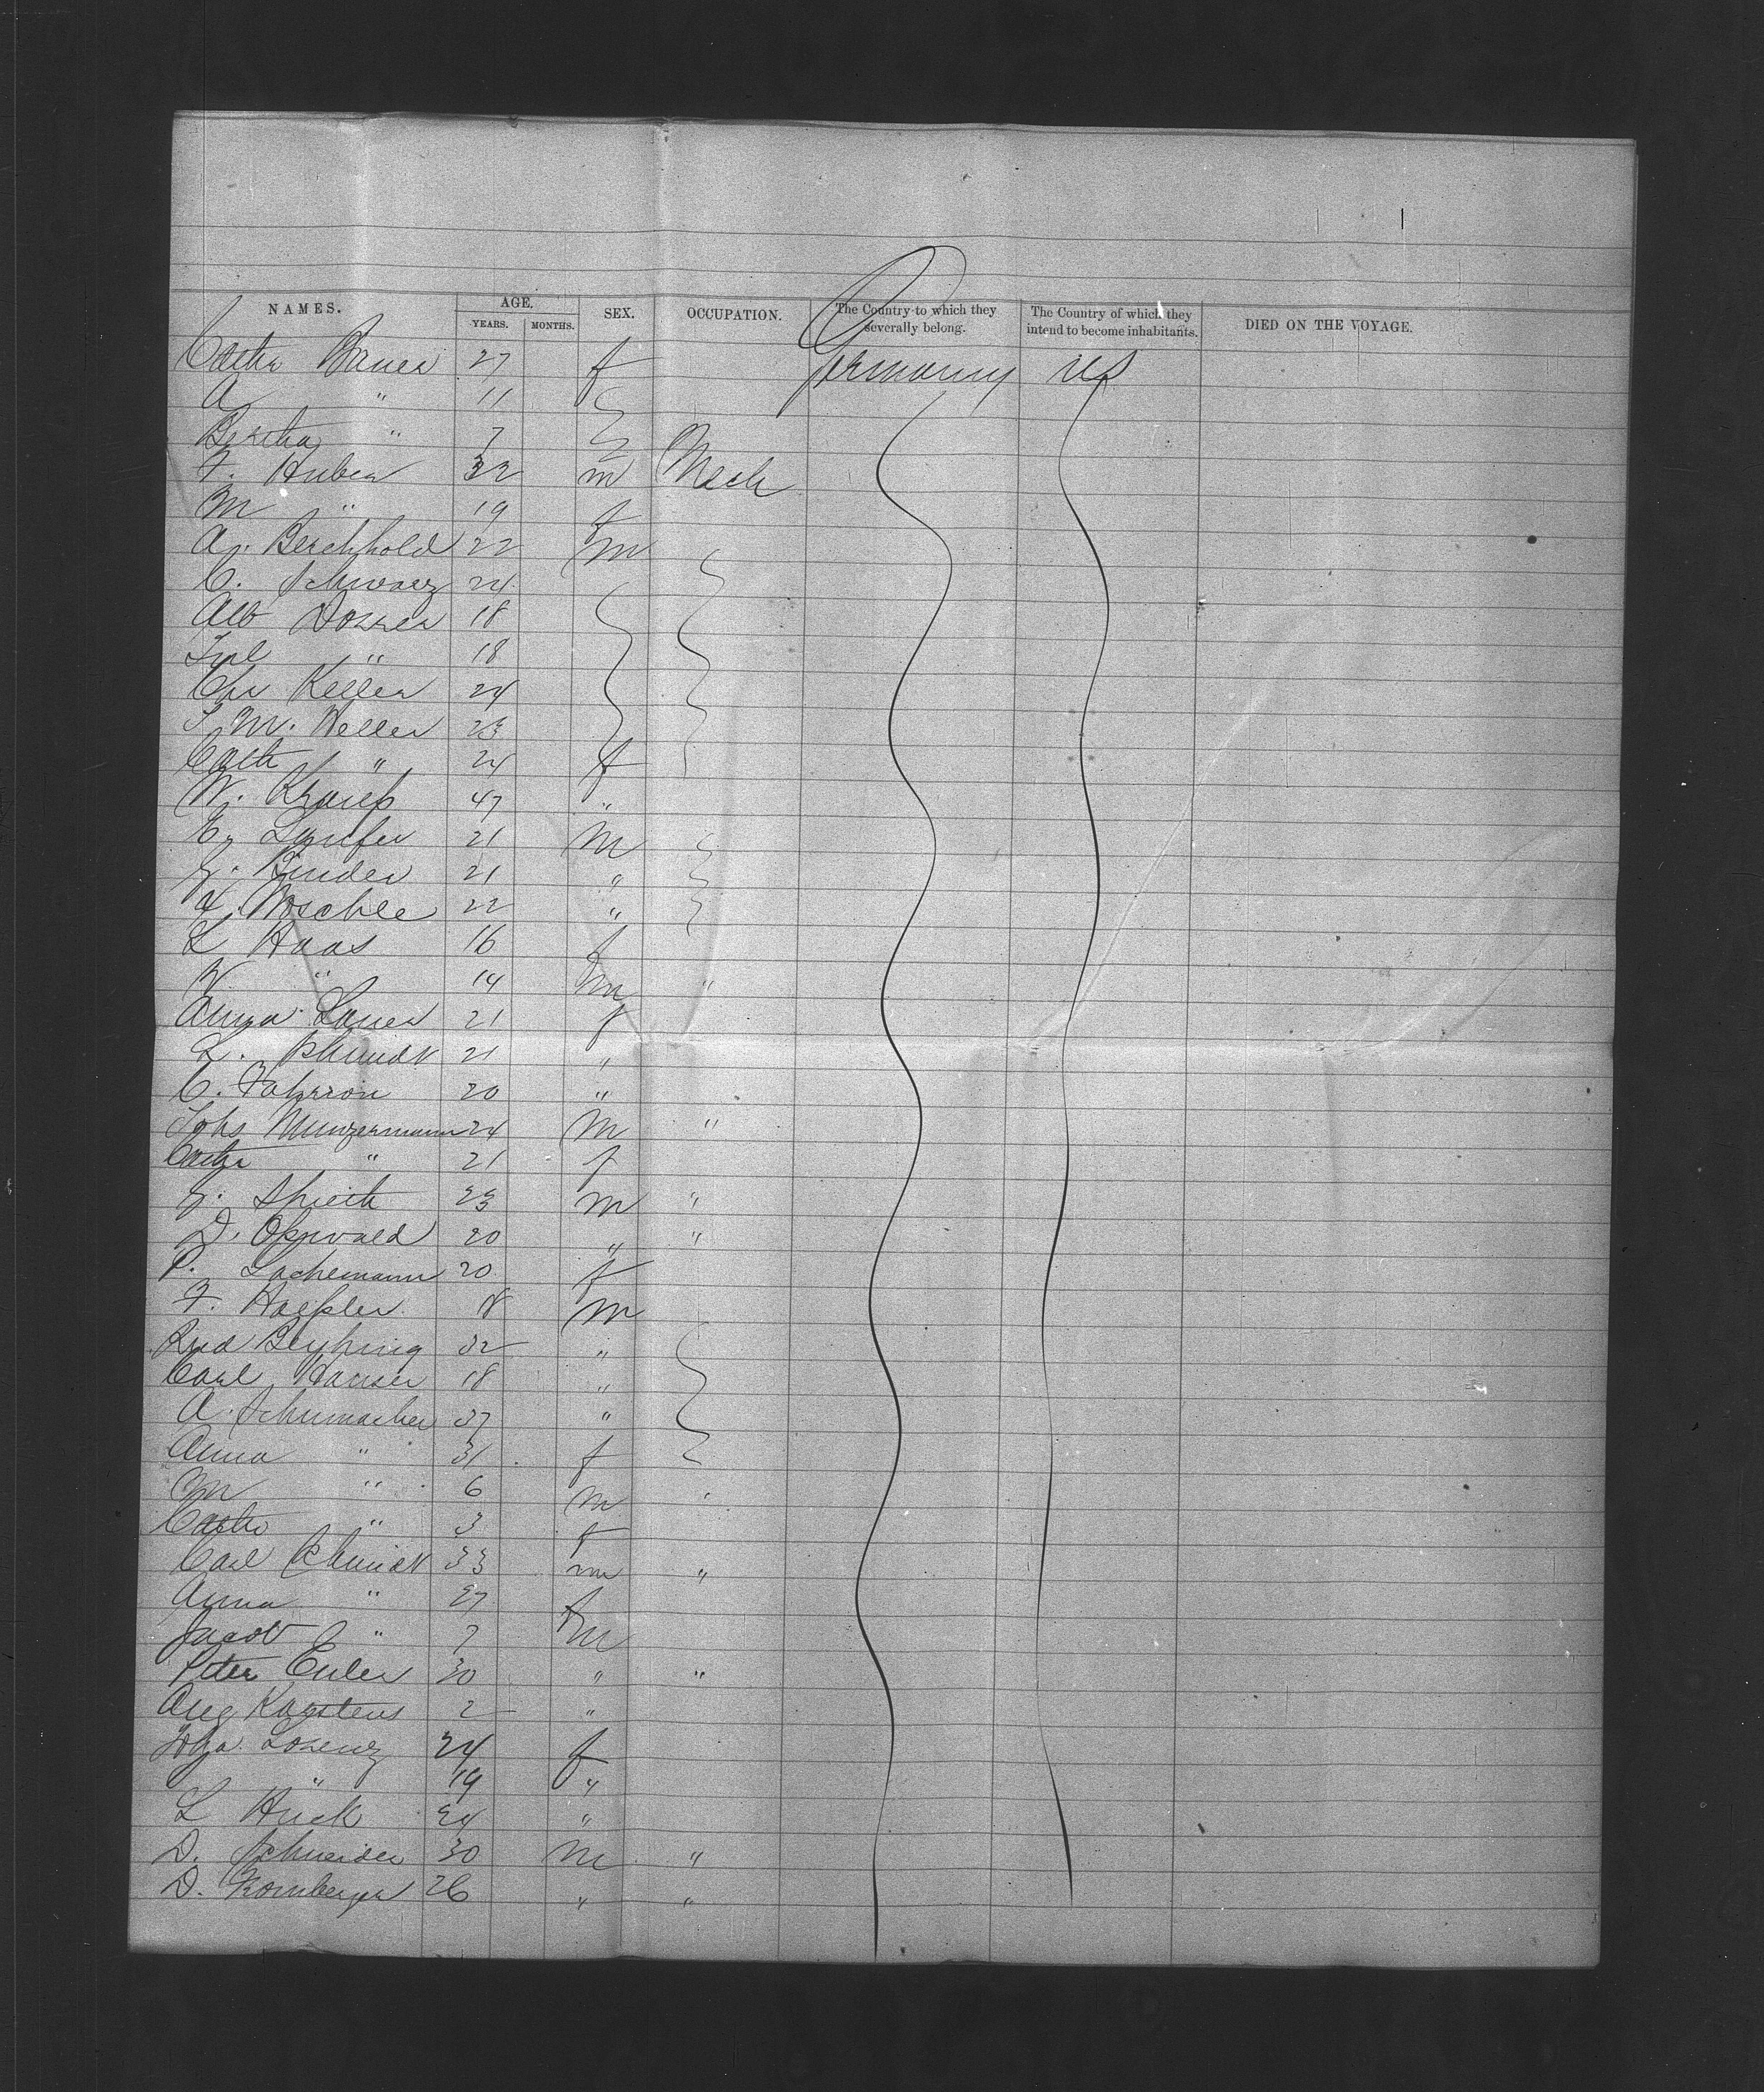 NAMES. AGE. YEARS. MONTHS. SEX. OCCUPATION. The Country to which they severally belong. The Country of which they intend to become inhabitants. DIED ON THE VOYAGE.
Cath Bauer 27 f Germany US
A " 11
Bertha " 7
F. Huber 32 m Mech
M " 19 f
A. Berchhold 22 m
C. Schwarz 24
Alb Dorrer 18
" 18
Chr Keller 24
J. M. Weller 23
Cath " 24 f
W. 47 "
21 M
G. Binder 21 "
A. 22 "
L Haas 16 f
W " 14 m "
Anna Lauer 21 f
L. Schmidt 21 "
C. Fahrion 20 "
Johs Munzermann 24 M "
Cath " 21 f
G. Spieth 23 m "
D. Oswald 20 " "
P. Lachemann 20 f
F. Haessler 18 m
Rud Beyhring 32 "
Carl Hauser 18 "
A. Schumacher 37 "
Anna " 31 f
M " 6 m
Cath " 3 f
Carl Schmidt 33 m "
Anna " 27 f
Jacob " 7 m
Peter Euler 30 " "
Aug Karstens 2 "
Joha Lorenz 24 f
" 19 "
L Huck 24 "
D. Schneider 30 M "
D. Kornberger 26 " "